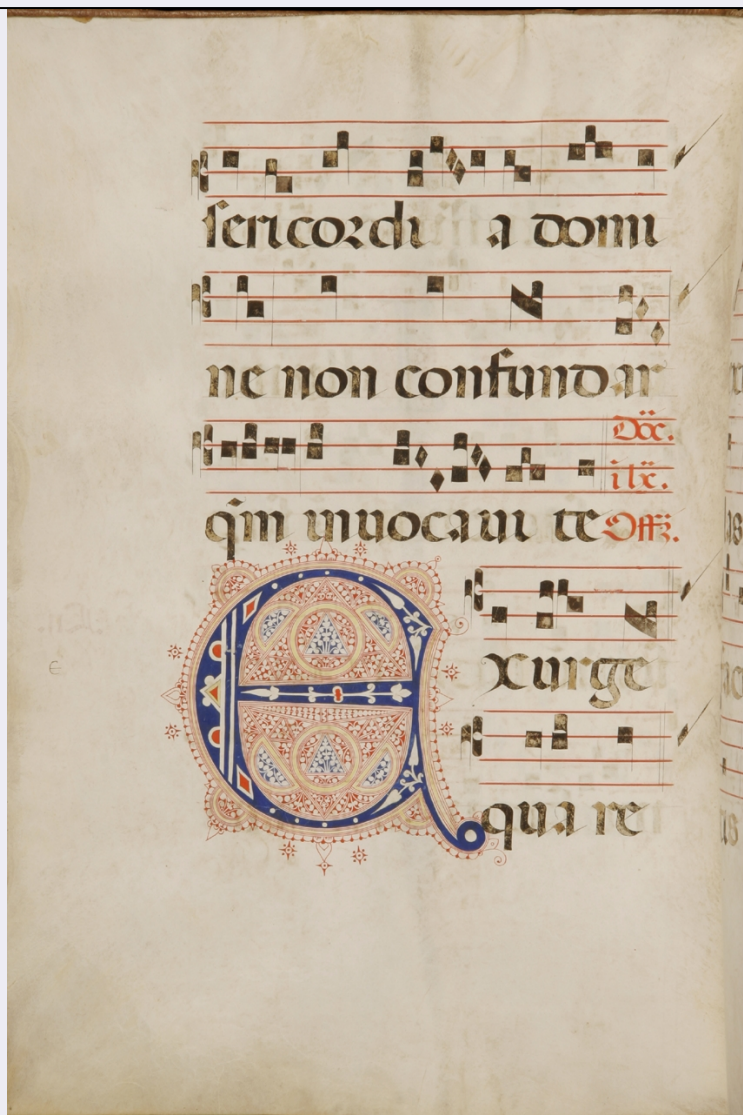 sericordi a domi
ne non confundar
Dõc.
ilx̃.
qm̃ inuocaui te Offz.
Exurge
qua re
e